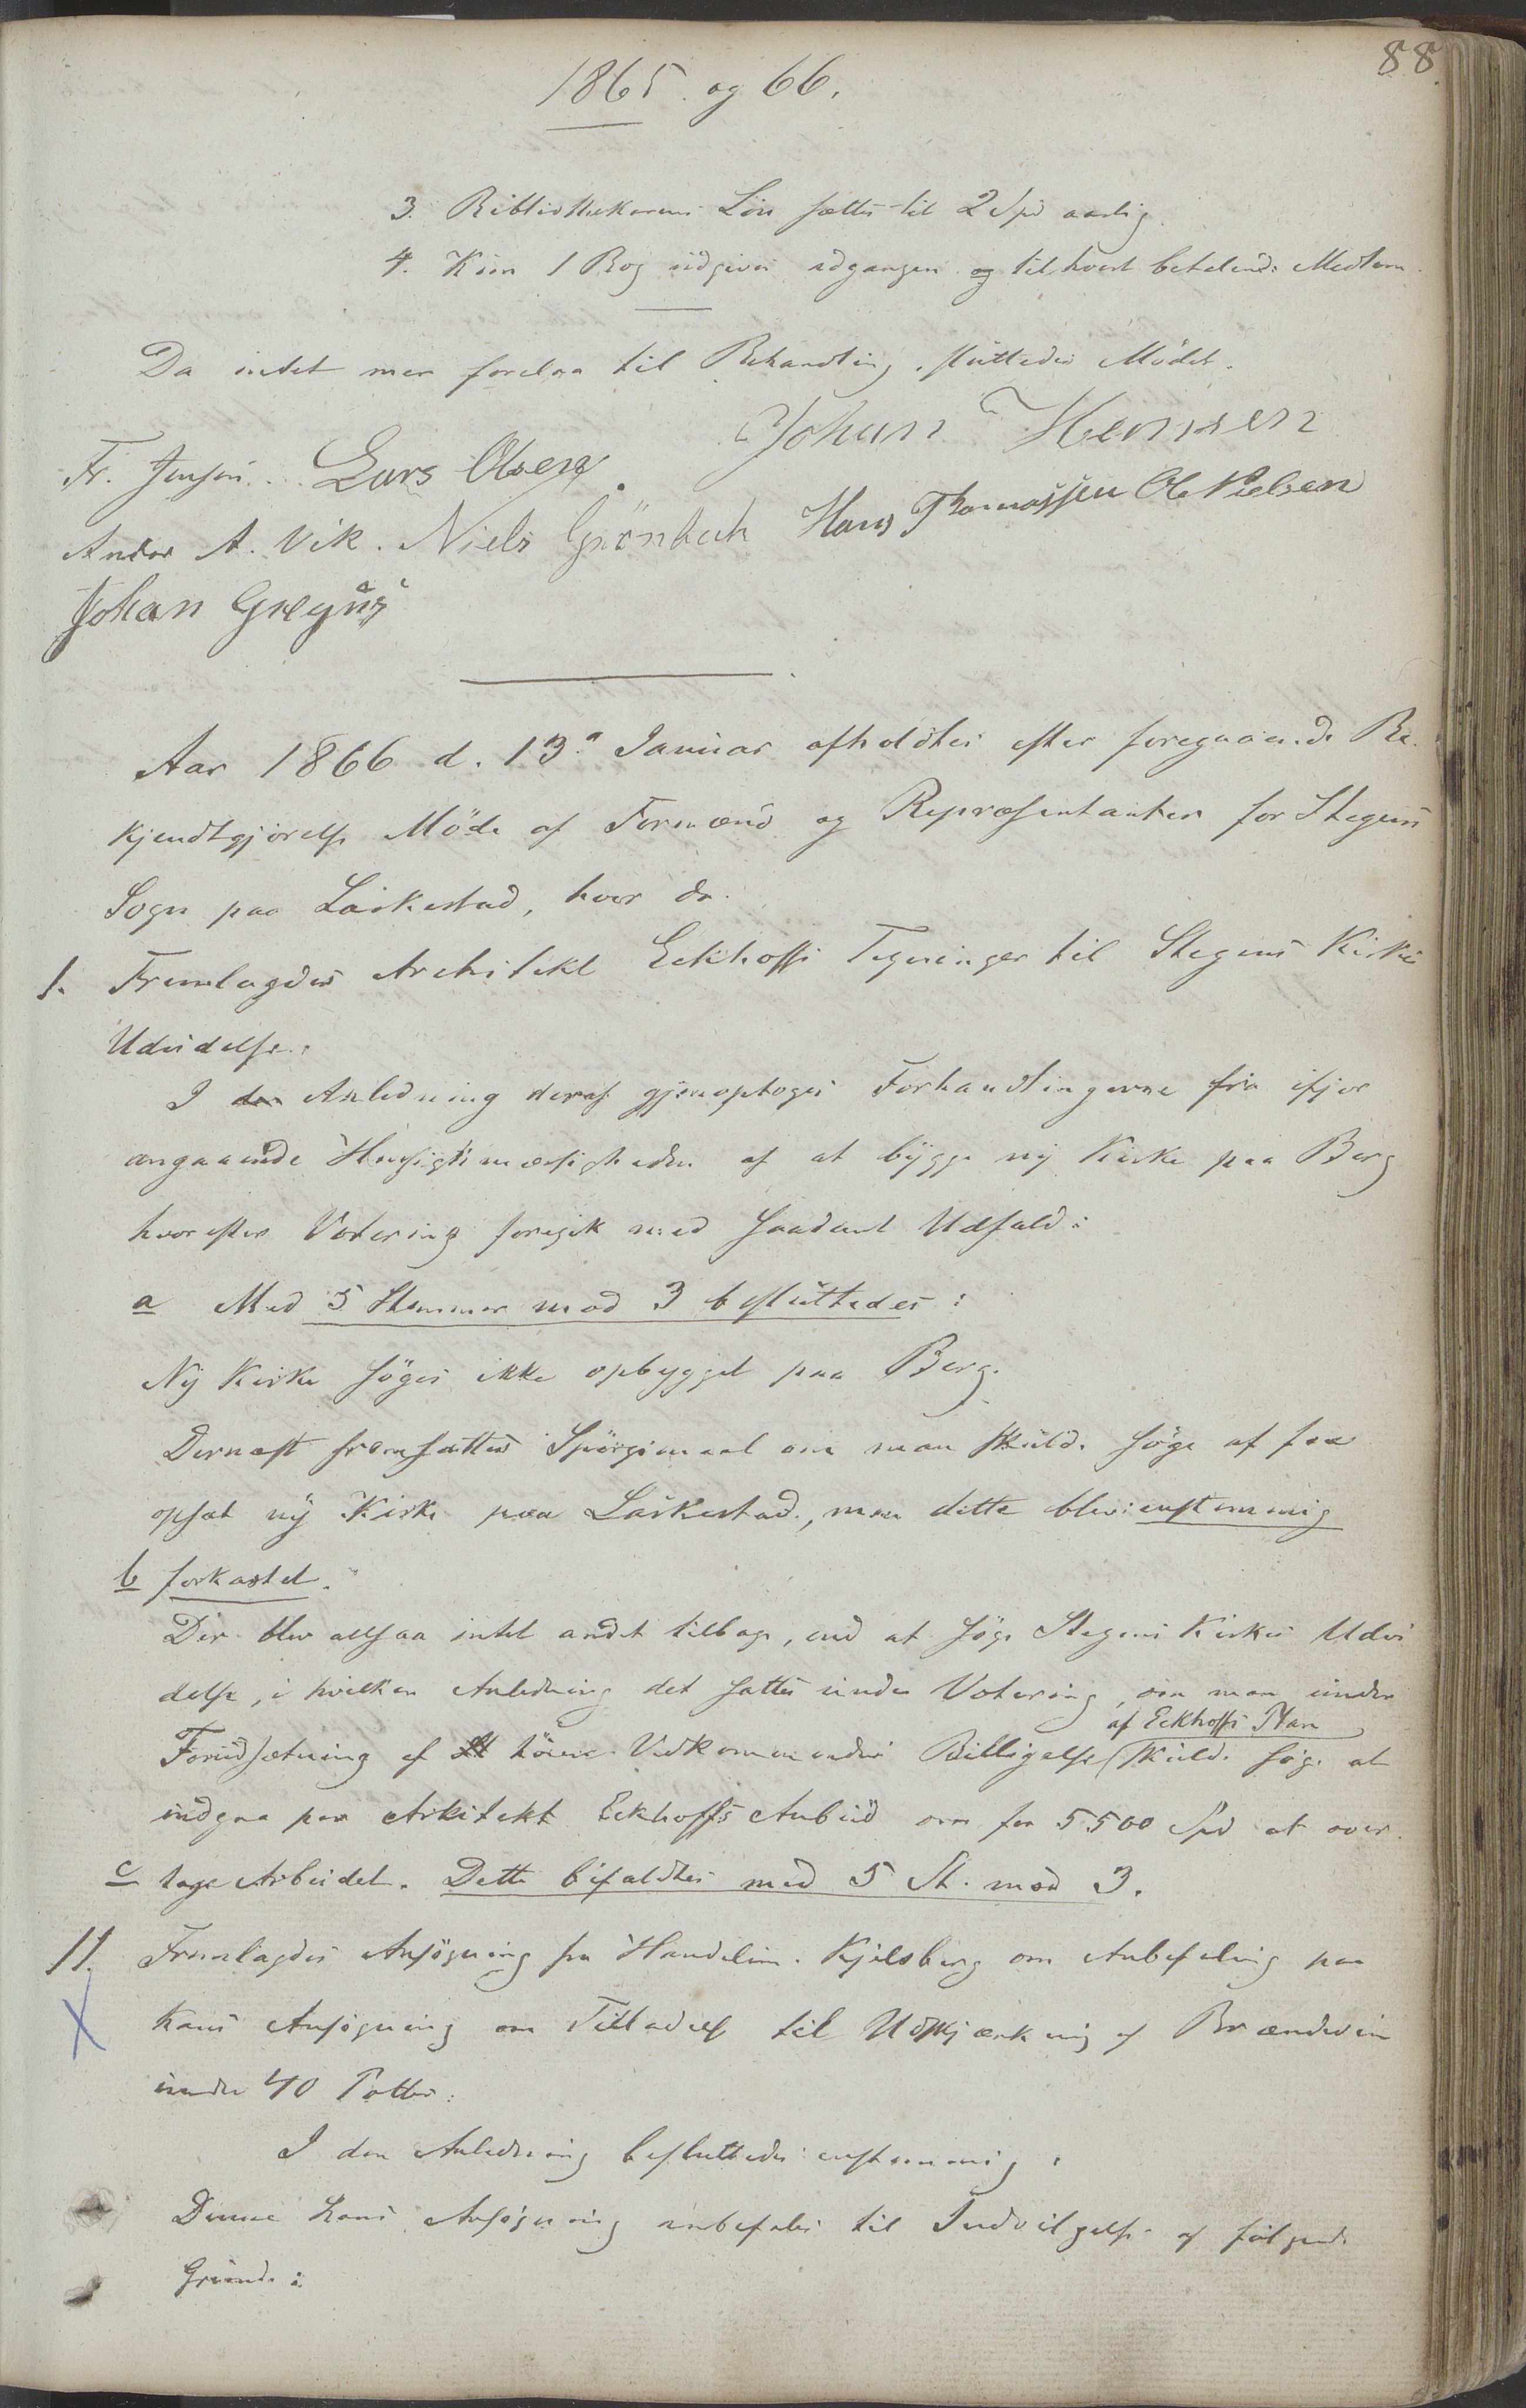 88.
1865 og 66.
3. Bibliothekarens Løn sættes til 2 Spd aarlig.
4. Kun 1 Bog udgives adgangen og til hvert betalende Medlem.
Da intet mer forelaa til Behandling, sluttedes Mödet.
Fr. Jensen. Lars Olsen. Johan Hemsen
Andor A. Vik. Niels Grönbech Hans Thomassen Ole Nielsen
Johan Gregus
Aar 1866 d. 13. Januar afholdtes efter foregaaende Be-
kjendtgjörelse Möde af Formænd og Repræsentanter for Stegens
Sogn paa Laskestad, hvor da.
1. Fremlagdes Architekt Eckhoffs Tegninger til Stegens Kirkes
Udvidelse.
I den Anledning deraf gjenoptoges Forhandlingerne fra ifjor
angaaende Hensigtsmæsigheden af at bygge ny Kirke paa Berg
hvorefter Votering foregik med saadant Udfald:
a Med 5 Stemmer mod 3 besluttedes:
Ny Kirke söges ikke opbygget paa Berg.
Dernæst fremsattes Spörgsmaal om man skulde söge at faa
opsat ny Kirke paa Laskestad, men dette blev enstemmig
b forkastet.
Der blev altsaa intet andet tilbage, end at söge Stegens Kirkes Udvi
delse, i hvilken Anledning det sattes under Votering, om man under
af Eckhoffs Plan
Forudsætning af höiere Vedkommendes Billigelse skulde söge at
indgaa paa Arkitekt Eckhoffs Anbud om for 5500 Spd at over-
c tage Arbeidet. Dette bifaldtes med 5 St. mod 3.
11. Fremlagdes Ansögning fra Handelsm. Kjelsberg om Anbefaling paa
X hans Ansögning om Tilladelse til Udskjænkning af Brændevin
under 40 Potter:
I den Anledning besluttedes enstemmig:
Denne hans Ansögning anbefales til Indvilgelse af fölgende
Grunde: